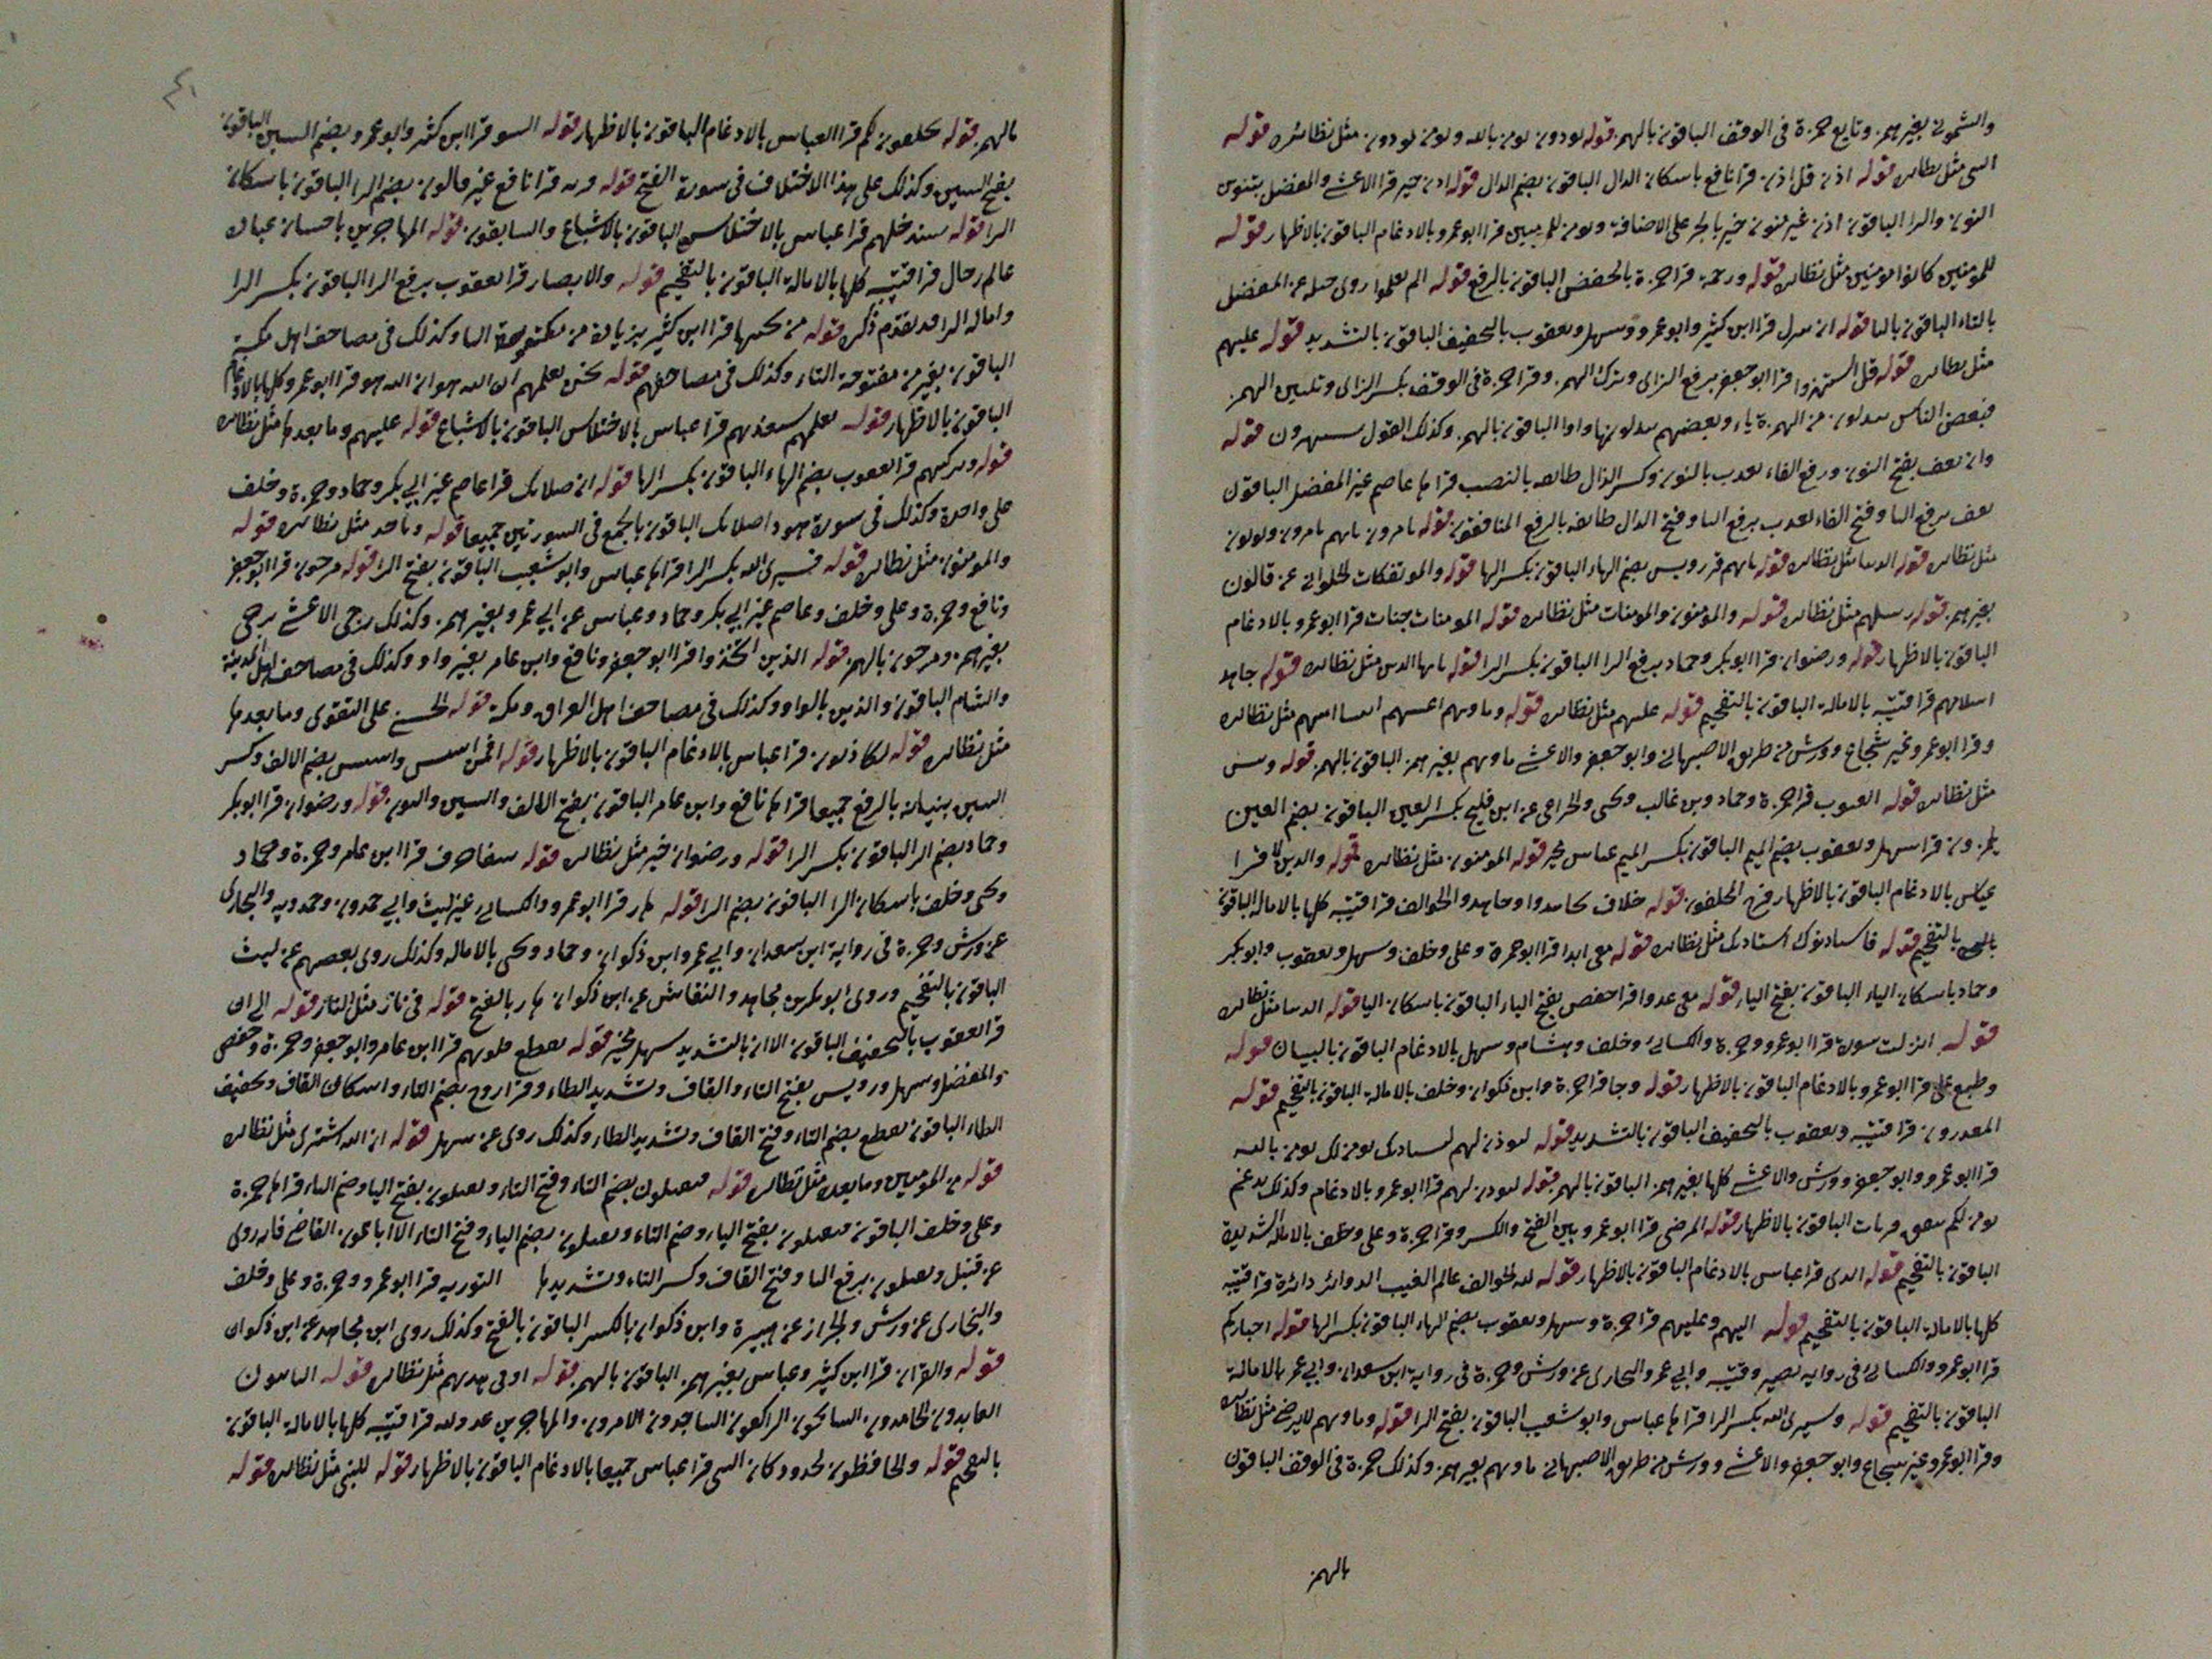 والشموني بغير همز وتابع حمزة في الوقف الباقون بالهمز قوله يودون يومن بالله ويومن يودون مثل نظائره قوله
النبي مثل نظائره قوله اذن قل اذن قرا نافع باسكان الذال الباقون بضم الذال قوله اذن خير قرا الاعشى والمفضل بتنوين
النون والرا الباقون اذن غير منون خير بالجر على الاضافة ويومن للمومنين قرا ابو عمرو بالادغام الباقون بالاظهار قوله
للمومنين كانوا مومنين مثل نظائره قوله ورحمة قرا حمزة بالخفض الباقون بالرفع قوله الم يعلموا روى جبلة عن المفضل
بالتاء الباقون باليا قوله ان تنزل قرا ابن كثير وابو عمرو وسهل ويعقوب بالتخفيف الباقون بالتشديد قوله عليهم
مثل نظائره قوله قل استهزوا قرا ابو جعفر برفع الزاى وترك الهمز وقرا حمزة في الوقف بكسر الزاى وتليين الهمز
فبعض الناس يبدلون من الهمزة ياء وبعضهم يبدلونها واوا الباقون بالهمز وكذلك القول يستهزون قوله
وان نعف بفتح النون ورفع الفاء نعذب بالنون وكسر الذال طائفه بالنصب قراها عاصم غير المفضل الباقون
يعف برفع اليا وفتح الفاء تعذب برفع التا وفتح الذال طائفه بالرفع المنافقون قوله يامرون ياتهم يامرون ويوتون
مثل نظائره قوله الدنيا مثل نظائره قوله ياتهم قرا رويس بضم الهاء الباقون بكسر الها قوله والموتفكات الحلواني عن قالون
بغير همز قوله رسلهم مثل نظائره قوله والمومنون والمومنات مثل نظائره قوله المومنات جنات قرا ابو عمرو بالادغام
الباقون بالاظهار قوله ورضوان قرا ابو بكر وحماد برفع الرا الباقون بكسر الرا قوله يايها النبي مثل نظائره قوله جاهد
اسلامهم قرا قتيبه بالامالة الباقون بالتفخيم قوله عليهم مثل نظائره قوله وماويهم اغنيهم اتينا اتيهم مثل نظائره
وقرا ابو عمرو غير شجاع وورش من طريق الاصبهاني وابو جعفر والاعشى ماويهم بغير همز الباقون بالهمز قوله وبئس
مثل نظائره قوله الغيوب قرا حمزة وحماد وبن غالب ويحيى والخزاعي عن ابن فليح بكسر الغين الباقون بضم الغين
يلمزون قرا سهل ويعقوب بضم الميم الباقون بكسر الميم عباس مخير قوله المومنون مثل نظائره قوله والذين لا قرا
عباس بالادغام الباقون بالاظهار فرح المخلفون قوله خلاف تجاهدوا وجاهدوا الخوالف قرا قتيبه كلها بالاماله الباقون
بالتفخيم قوله فاستاذنوك استاذنك مثل نظائره قوله معى ابدا قرا ابو حمزة وعلى وخلف وسهل ويعقوب وابو بكر
وحماد باسكان الياء الباقون بفتح الياء قوله معى عدوا قرا حفص بفتح الياء الباقون باسكان اليا قوله الدنيا مثل نظائره
قوله انزلت سورة قرا ابو عمرو وحمزة والكسائي وخلف وهشام وسهل بالادغام الباقون بالبيان قوله
وطبع على قرا ابو عمرو بالادغام الباقون بالاظهار قوله وجا قرا حمزة وابن ذكوان وخلف بالامالة الباقون بالتفخيم قوله
المعذرون قرا قتيبه ويعقوب بالتخفيف الباقون بالتشديد قوله ليوذن لهم ليستاذنك نومن لك يومن بالله
قرا ابو عمرو وابو جعفر وورش والاعشى كلها بغير همز الباقون بالهمز قوله ليوذن لهم قرا ابو عمرو بالادغام وكذلك يدغم
نومن لكم ينفق قربات الباقون بالاظهار قوله المرضى قرا ابو عمرو بين الفتح والكسر وقرا حمزة وعلى وخلف بالاماله الشديدة
الباقون بالتفخيم قوله الذى قرا عباس بالادغام الباقون بالاظهار قوله لله الخوالف عالم الغيب الدوائر دائرة قرا قتيبه
كلها بالامالة الباقون بالتفخيم قوله اليهم وعليهم قرا حمزة وسهل ويعقوب بضم الهاء الباقون بكسر الها قوله اخباركم
قرا ابو عمرو والكسائي في رواية نصير وقتيبه وابي عمر والبخارى عن ورش وحمزة في رواية ابن سعدان وابي عمر بالامالة
الباقون بالتفخيم قوله وسيرى الله بكسر الرا قراها عباس وابو شعيب الباقون بفتح الرا قوله وماويهم لا يرضى مثل نظائره
وقرا ابو عمرو غير شجاع وابو جعفر والاعشى وورش من طريق الاصبهاني ماويهم بغير همز وكذلك حمزة في الوقف الباقون
بالهمز
٤٠
بالهمز قوله يحلفون لكم قرا العباس بالادغام الباقون بالاظهار قوله السو قرا ابن كثير وابو عمرو بضم السين الباقون
بفتح السين وكذلك على هذا الاختلاف في سورة الفتح قوله قربه قرا نافع غير قالون بضم الرا الباقون باسكان
الرا قوله سيدخلهم قرا عباس بالاختلاس الباقون بالاشباع والسابقون قوله المهاجرين باحسان عباد
عالم رجال قرا قتيبه كلها بالامالة الباقون بالتفخيم قوله والانصار قرا يعقوب برفع الرا الباقون بكسر الرا
وامالة الرا قد تقدم ذكره قوله من تحتها قرا ابن كثير بزيادة من مكسورة التا وكذلك في مصاحف اهل مكة
الباقون بغير من مفتوحة التاء وكذلك في مصاحفهم قوله نحن نعلمهم ان الله هو ان الله هو قرا ابو عمرو كلها بالادغام
الباقون بالاظهار قوله نعلمهم سنعذبهم قرا عباس بالاختلاس الباقون بالاشباع قوله عليهم وما بعدها مثل نظائره
قوله وتزكيهم قرا يعقوب بضم الهاء الباقون بكسر الها قوله ان صلاتك قرا عاصم غير ابي بكر وحماد وحمزة وخلف
على واحدة وكذلك في سورة هود اصلاتك الباقون بالجمع في السورتين جميعا قوله وياخذ مثل نظائره قوله
والمومنون مثل نظائره قوله فسيرى الله بكسر الرا قراها عباس وابو شعيب الباقون بفتح الرا قوله مرجون قرا ابو جعفر
ونافع وحمزة وعلى وخلف وعاصم غير ابي بكر وحماد وعباس عن ابي عمرو بغير همز وكذلك رجى الاعشى برجى
بغير همز ومرجون بالهمز قوله الذين اتخذوا قرا ابو جعفر ونافع وابن عامر بغير واو وكذلك في مصاحف اهل المدينة
والشام الباقون والذين بالواو وكذلك في مصاحف اهل العراق ومكة قوله الحسنى على التقوى وما بعدها
مثل نظائره قوله لكاذبون قرا عباس بالادغام الباقون بالاظهار قوله افمن اسس واسس بضم الالف وكسر
السين بنيانه بالرفع جميعا قراها نافع وابن عامر الباقون بفتح الالف والسين والنون قوله ورضوان قرا ابو بكر
وحماد بضم الرا الباقون بكسر الرا قوله ورضوان خير مثل نظائره قوله شفا جرف قرا ابن عامر وحمزة وحماد
ويحيى وخلف باسكان الرا الباقون بضم الرا قوله هار قرا ابو عمرو والكسائي غير ليث وابي حمدون وحمدويه والبخارى
عن ورش وحمزة في رواية ابن سعدان وابي عمر وابن ذكوان وحماد ويحيى بالامالة وكذلك روى بعضهم عن ليث
الباقون بالتفخيم وروى ابو بكر بن مجاهد والنقاش عن ابن ذكوان هار بالفتح قوله في نار مثل النار قوله الى ان
قرا يعقوب بالتخفيف الباقون الا ان بالتشديد سهل مخير قوله تقطع قلوبهم قرا ابن عامر وابو جعفر وحمزة وحفص
والمفضل وسهل ورويس بفتح التاء والقاف وتشديد الطاء وقرا روح بضم التاء واسكان القاف وتخفيف
الطاء الباقون تقطع بضم التاء وفتح القاف وتشديد الطاء وكذلك روى عن سهل قوله ان الله اشترى مثل نظائره
قوله من المومنين وما بعده مثل نظائره قوله فيقتلون بضم الياء وفتح التاء ويقتلون بفتح اليا وضم التاء قراها حمزة
وعلى وخلف الباقون فيقتلون بفتح الياء وضم التاء ويقتلون بضم الياء وفتح التاء الا ابا عون القاضى فانه روى
عن قنبل ويقتلون برفع اليا وفتح القاف وكسر التاء وتشديدها التوريه قرا ابو عمرو وحمزة وعلى وخلف
والبخارى عن ورش والخراز عن هبيرة وابن ذكوان بالكسر الباقون بالفتح وكذلك روى ابن مجاهد عن ابن ذكوان
قوله والقران قرا ابن كثير وعباس بغير همز الباقون بالهمز قوله اوفى بعهدهم مثل نظائره قوله التائبون
العابدون الحامدون السائحون الراكعون الساجدون الامرون والمهاجرين عدو لله قرا قتيبه كلها بالامالة الباقون
بالتفخيم قوله والحافظون لحدود كان النبي قرا عباس جميعا بالادغام الباقون بالاظهار قوله للنبي مثل نظائره قوله